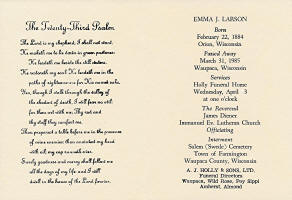 The Twenty-Third Psalm
The Lord is my shepherd, I shall not want.
He maketh me to lie down in green pastures:
He leadeth me beside the still waters.
He restoreth my soul: He leadeth me in the
paths of righteousness for His name's sake.
Yea, though I walk through the valley of
the shadow of death, I will fear no evil:
for thou art with me; Thy rod and
thy staff they comfort me.
Thou preparest a table before me in the presence
of mine enemies: thou anointest my head
with oil; my cup runneth over.
Surely goodness and mercy shall follow me
all the days of my life and I will
dwell in the house of the Lord forever.
EMMA J. LARSON
Born
February 22, 1884
Orion, Wisconsin
Passed Away
March 31, 1985
Waupaca, Wisconsin
Services
Holly Funeral Home
Wednesday, April 3
at one o'clock
The Reverend
James Diener
Immanuel Ev. Lutheran Church
Officiating
Interment
Salem (Swede) Cemetery
Town of Farmington
Waupaca County, Wisconsin
A. J. HOLLY & SONS, LTD.
Funeral Directors
Waupaca, Wild Rose, Poy Sippi
Amherst, Almond